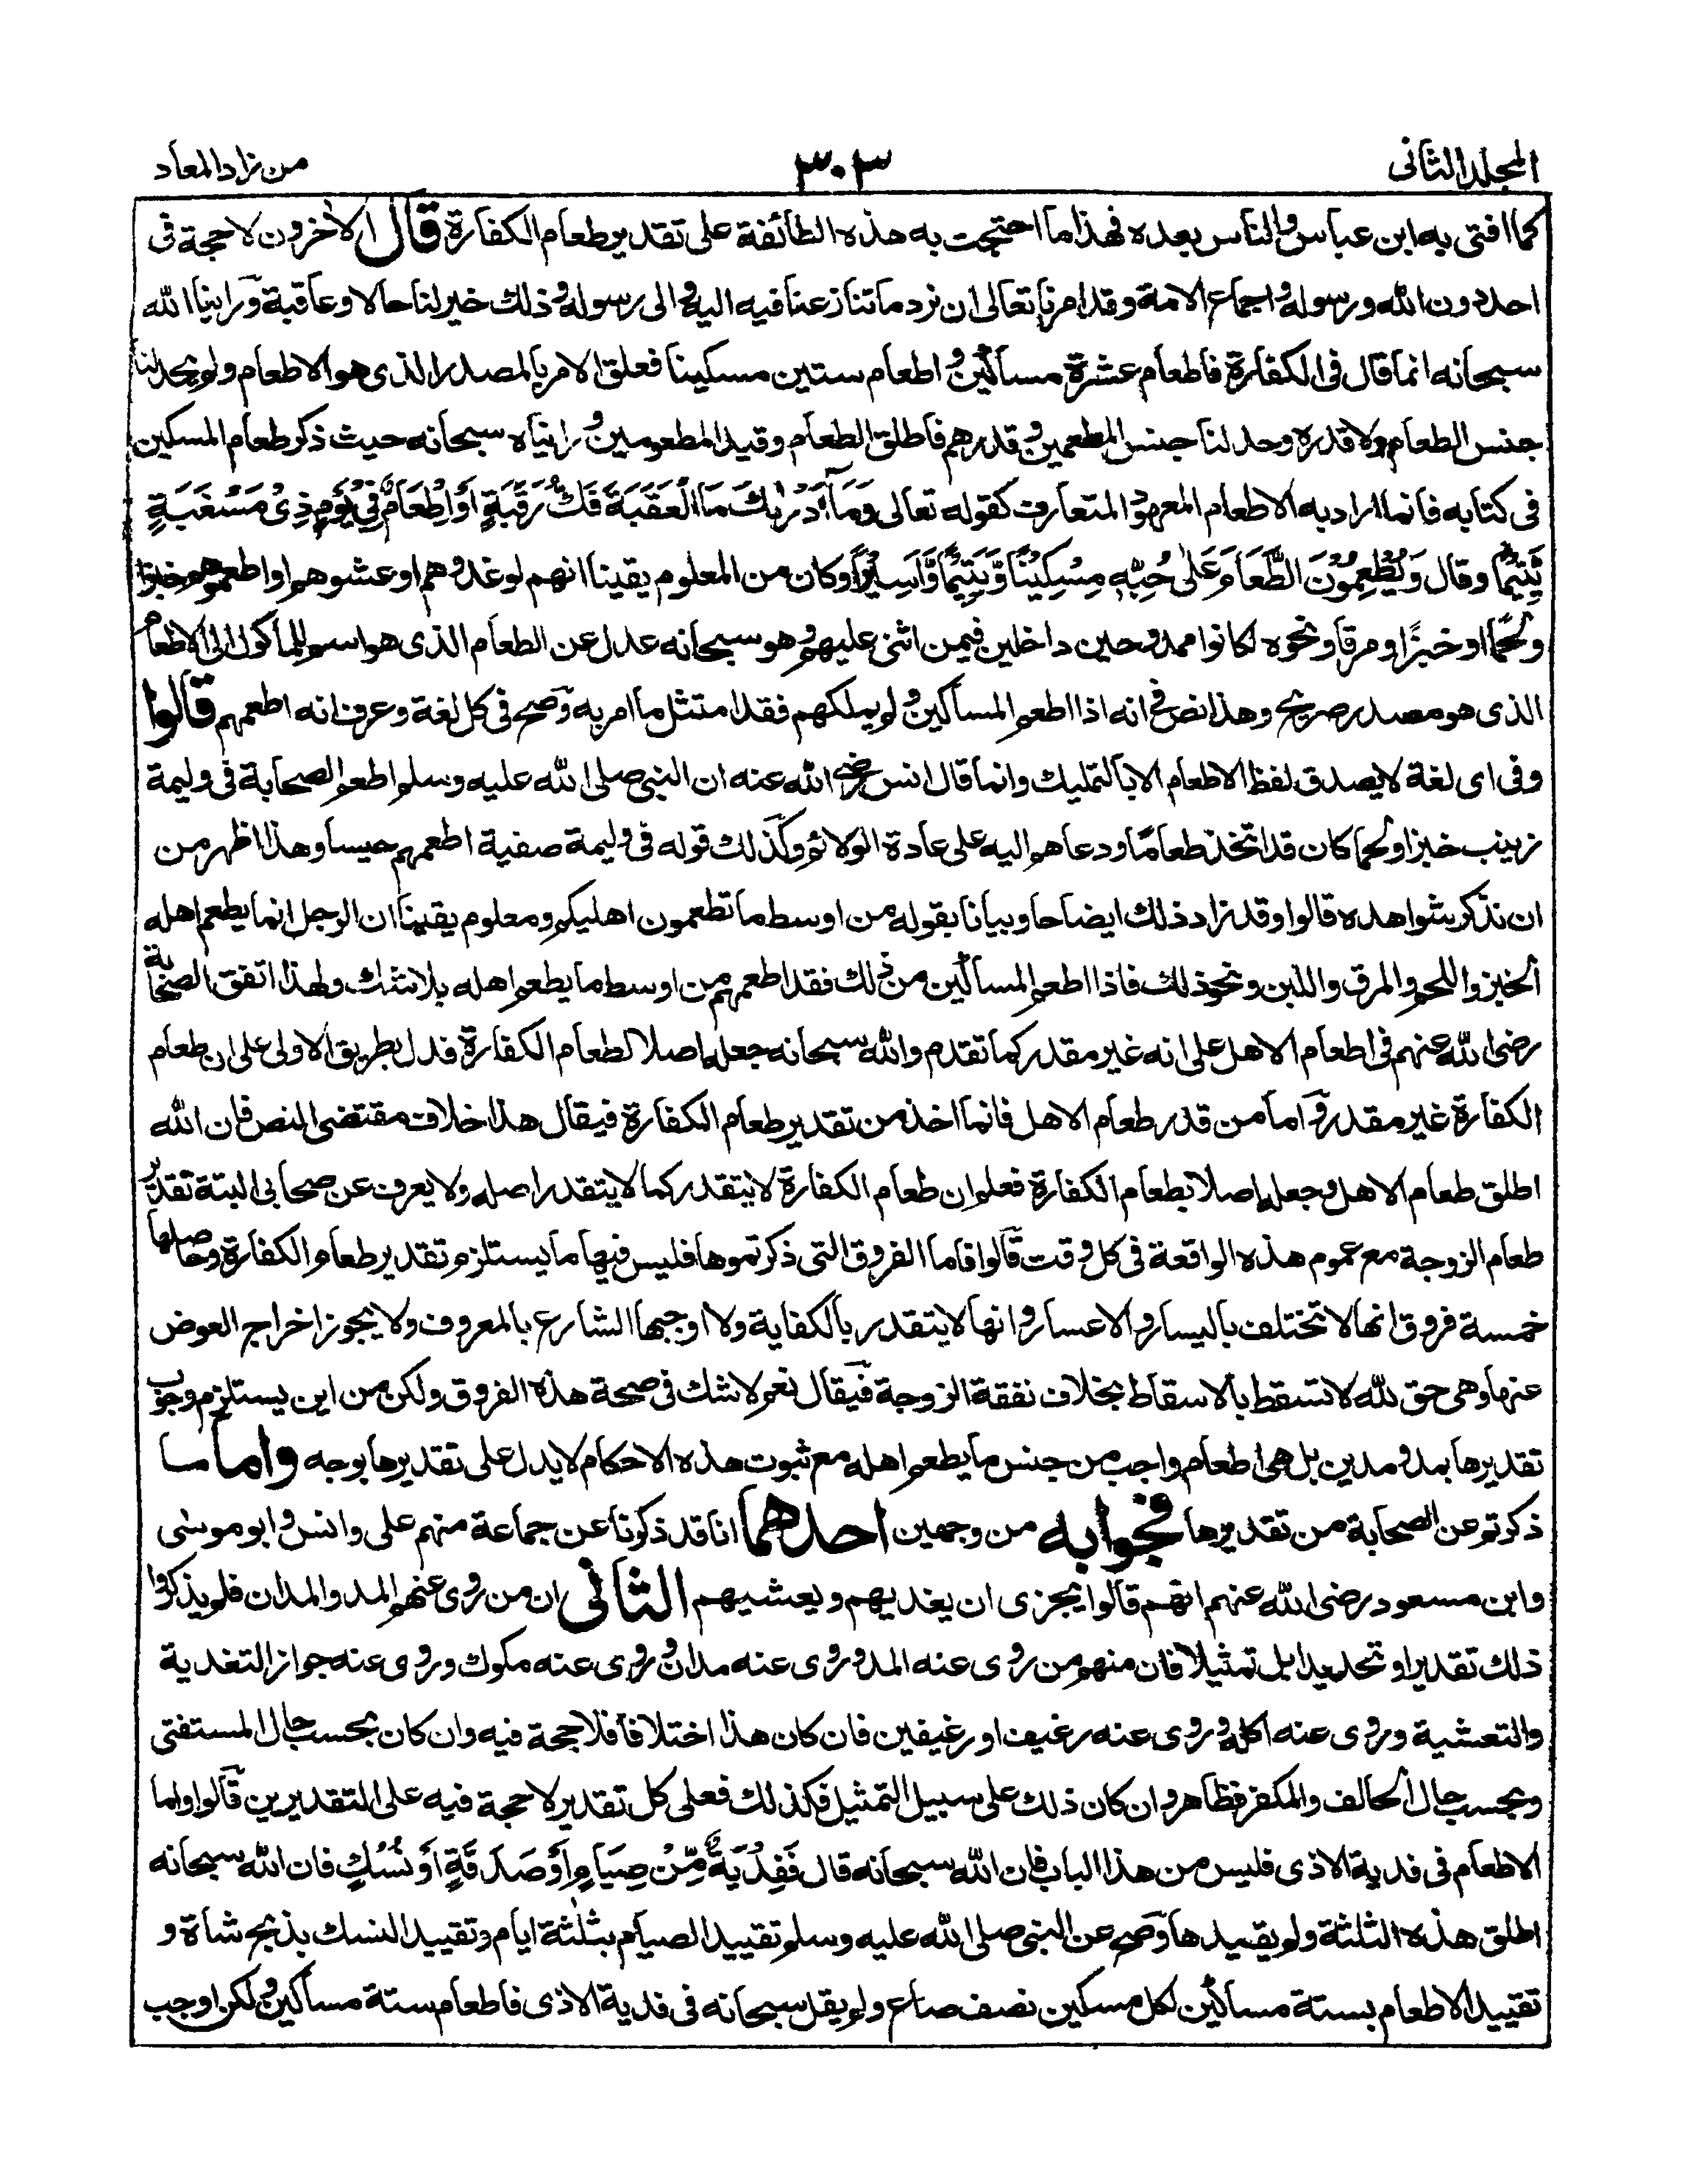 المجلد الثانى
٣٠٣
من زاد المعاد
كما افتى به ابن عباس والناس بعده فهذا ما احتجت به هذه الطائفة على تقدير طعام الكفارة قال الاخرون لا حجة فى
احد دون الله ورسوله واجماع الامة وقد امرنا تعالى ان نرد ما تنازعنا فيه اليه والى رسوله وذلك خير لنا حالا وعاقبة ورأينا الله
سبحانه انما قال فى الكفارة فاطعام عشرة مساكين و اطعام ستين مسكينا فعلق الامر بالمصدر الذى هو الاطعام ولم يحد لنا
جنس الطعام ولا قدره وحد لنا جنس المطعمين وقدرهم فاطلق الطعام وقيد المطعومين و رايناه سبحانه حيث ذكر طعام المسكين
فى كتابه فانما اراد به الاطعام المعهود المتعارف كقوله تعالى وَمَآ أَدْرٰىكَ مَا الْعَقَبَةَ فَكُّ رَقَبَةٍ اَوْ اِطْعَامٌ فِيْ يَوْمٍ ذِيْ مَسْغَبَةٍ
يَّتِيْمًا وقال وَيُطْعِمُوْنَ الطَّعَامَ عَلٰى حُبِّهٖ مِسْكِيْنًا وَّيَتِيْمًا وَّاَسِيْرًا وكان من المعلوم يقينا انهم لو غدوهم او عشوهم او اطعموهم خبزا
ولحما او خبزا و مرقا ونحوه لكانوا ممدوحين داخلين فيمن اثنى عليهم وهو سبحانه عدل عن الطعام الذى هو اسم للمأكول الى الاطعام
الذى هو مصدر صريح وهذا نص فى انه اذا اطعم المساكين ولم يملكهم فقد امتثل ما امر به وصح فى كل لغة وعرف انه اطعمهم قالوا
وفى اى لغة لا يصدق لفظ الاطعام الا بالتمليك وانما قال انس رضى الله عنه ان النبى صلى الله عليه وسلم اطعم الصحابة فى وليمة
زينب خبزا ولحما كان قد اتخذ طعاما ودعاهم اليه على عادة الولائم وكذلك قوله فى وليمة صفية اطعمهم حيسا وهذا اظهر من
ان نذكر شواهده قالوا وقد زاد ذلك ايضاحا وبيانا بقوله من اوسط ما تطعمون اهليكم ومعلوم يقينا ان الرجل انما يطعم اهله
الخبز واللحم والمرق واللبن ونحو ذلك فاذا اطعم المساكين من ذلك فقد اطعمهم من اوسط ما يطعم اهله بلا شك ولهذا اتفق الصحابة
رضى الله عنهم فى اطعام الاهل على انه غير مقدر كما تقدم والله سبحانه جعله اصلا لطعام الكفارة فدل بطريق الاولى على ان طعام
الكفارة غير مقدر و اما من قدر طعام الاهل فانما اخذ من تقدير طعام الكفارة فيقال هذا خلاف مقتضى النص فان الله
اطلق طعام الاهل وجعله اصلا بطعام الكفارة فعلم ان طعام الكفارة لا يتقدر كما لا يتقدر اصله ولا يعرف عن صحابى البتة تقدير
طعام الزوجة مع عموم هذه الواقعة فى كل وقت قالوا فاما الفروق التى ذكرتموها فليس فيها ما يستلزم تقدير طعام الكفارة وحاصلها
خمسة فروق انها لا تختلف باليسار والاعسار وانها لا يتقدر بالكفاية ولا اوجبها الشارع بالمعروف ولا يجوز اخراج العوض
عنها وهى حق لله لا تسقط بالاسقاط بخلاف نفقة الزوجة فيقال نعم لا شك فى صحة هذه الفروق ولكن من اين يستلزم وجوب
تقديرها بمد ومدين بل هى اطعام واجب من جنس ما يطعم اهله مع ثبوت هذه الاحكام لا يدل على تقديرها بوجه واما ما
ذكرتم عن الصحابة من تقديرها فجوابه من وجهين احدهما انا قد ذكرنا عن جماعة منهم على وانس وابو موسى
وابن مسعود رضى الله عنهم انهم قالوا يجزى ان يغديهم ويعشيهم الثانى ان من روى عنهم المد والمدان فلم يذكروا
ذلك تقديرا وتحديدا بل تمثيلا فان منهم من روى عنه المد وروى عنه مدان وروى عنه مكوك وروى عنه جواز التغدية
والتعشية وروى عنه اكلة وروى عنه رغيف او رغيفين فان كان هذا اختلافا فلا حجة فيه وان كان بحسب حال المستفتى
وبحسب حال الحالف والمكفر فظاهر وان كان ذلك على سبيل التمثيل فكذلك فعلى كل تقدير لا حجة فيه على التقديرين قالوا واما
الاطعام فى فدية الاذى فليس من هذا الباب فان الله سبحانه قال فَفِدْيَةٌ مِّنْ صِيَامٍ اَوْ صَدَقَةٍ اَوْ نُسُكٍ فان الله سبحانه
اطلق هذه الثلثة ولم يقيدها وصح عن النبى صلى الله عليه وسلم تقييد الصيام بثلثة ايام وتقييد النسك بذبح شاة و
تقييد الاطعام بستة مساكين لكل مسكين نصف صاع ولم يقل سبحانه فى فدية الاذى فاطعام ستة مساكين ولكن اوجب